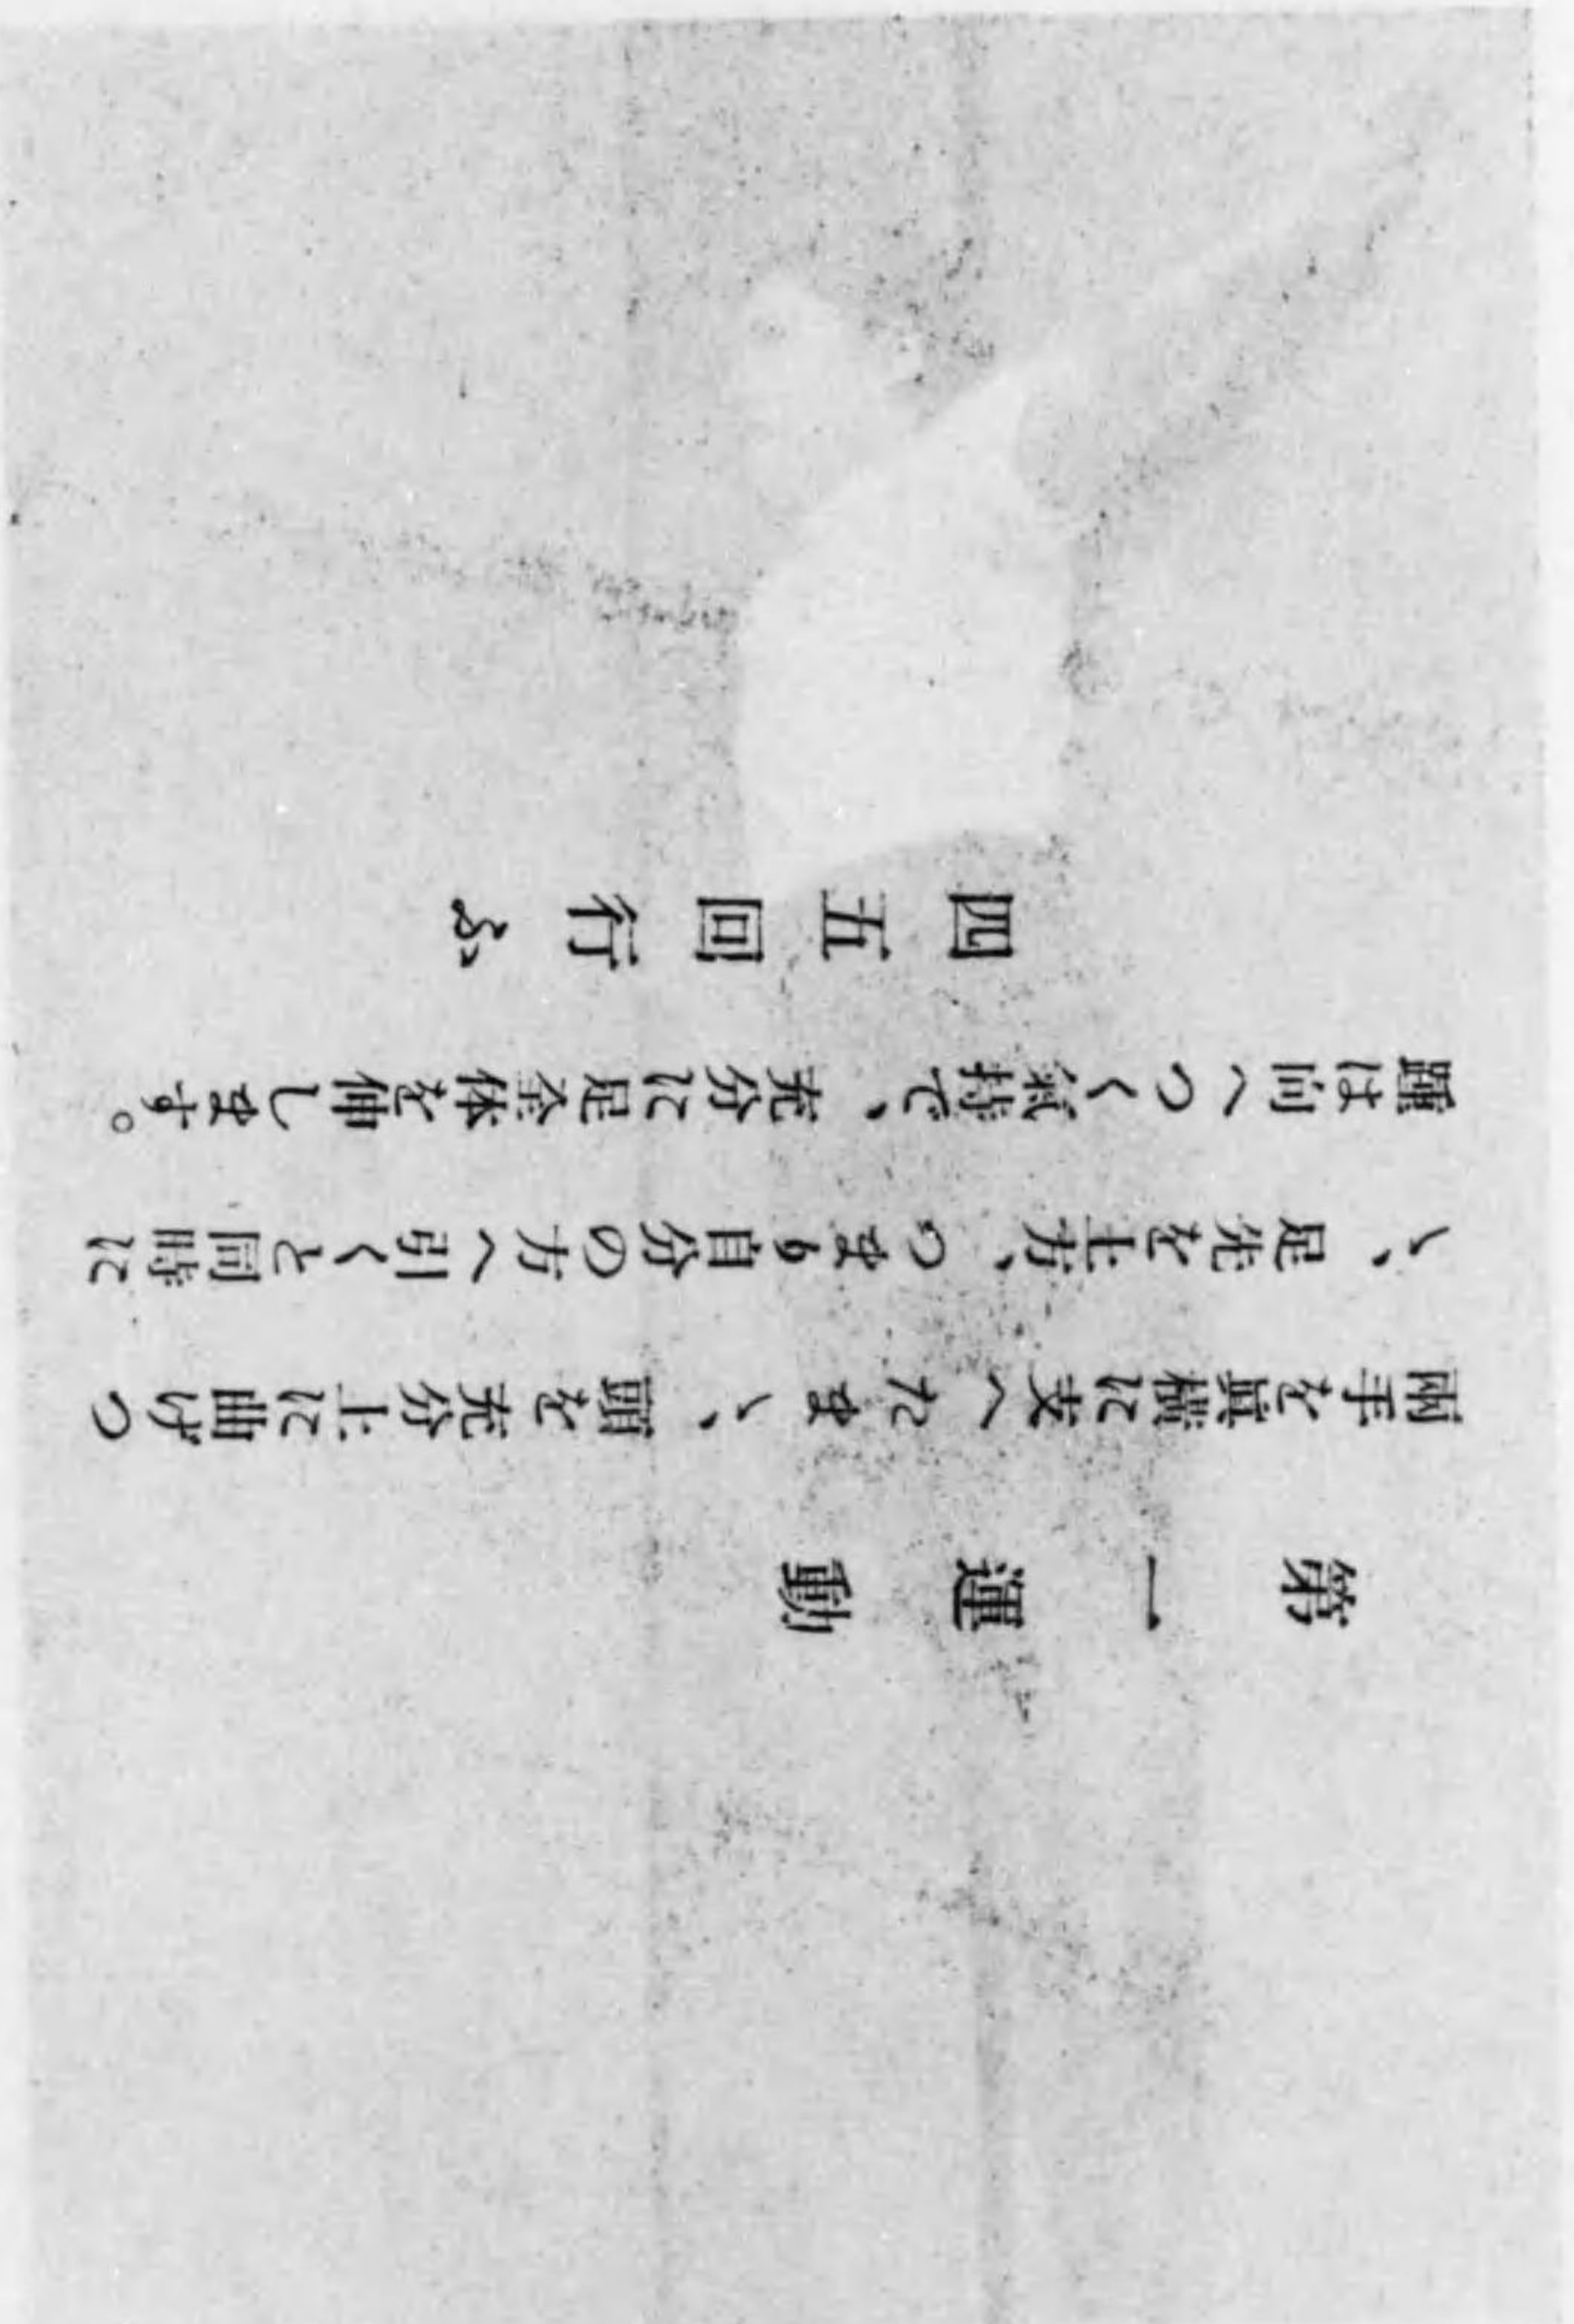 第一運動
兩手を眞横に支へたまゝ、頭を充分上に曲げつ
ゝ、足先を上方、つまり自分の方へ引くと同時に
踵は向へつく氣持で、充分に足全体を伸します。
四五回行ふ